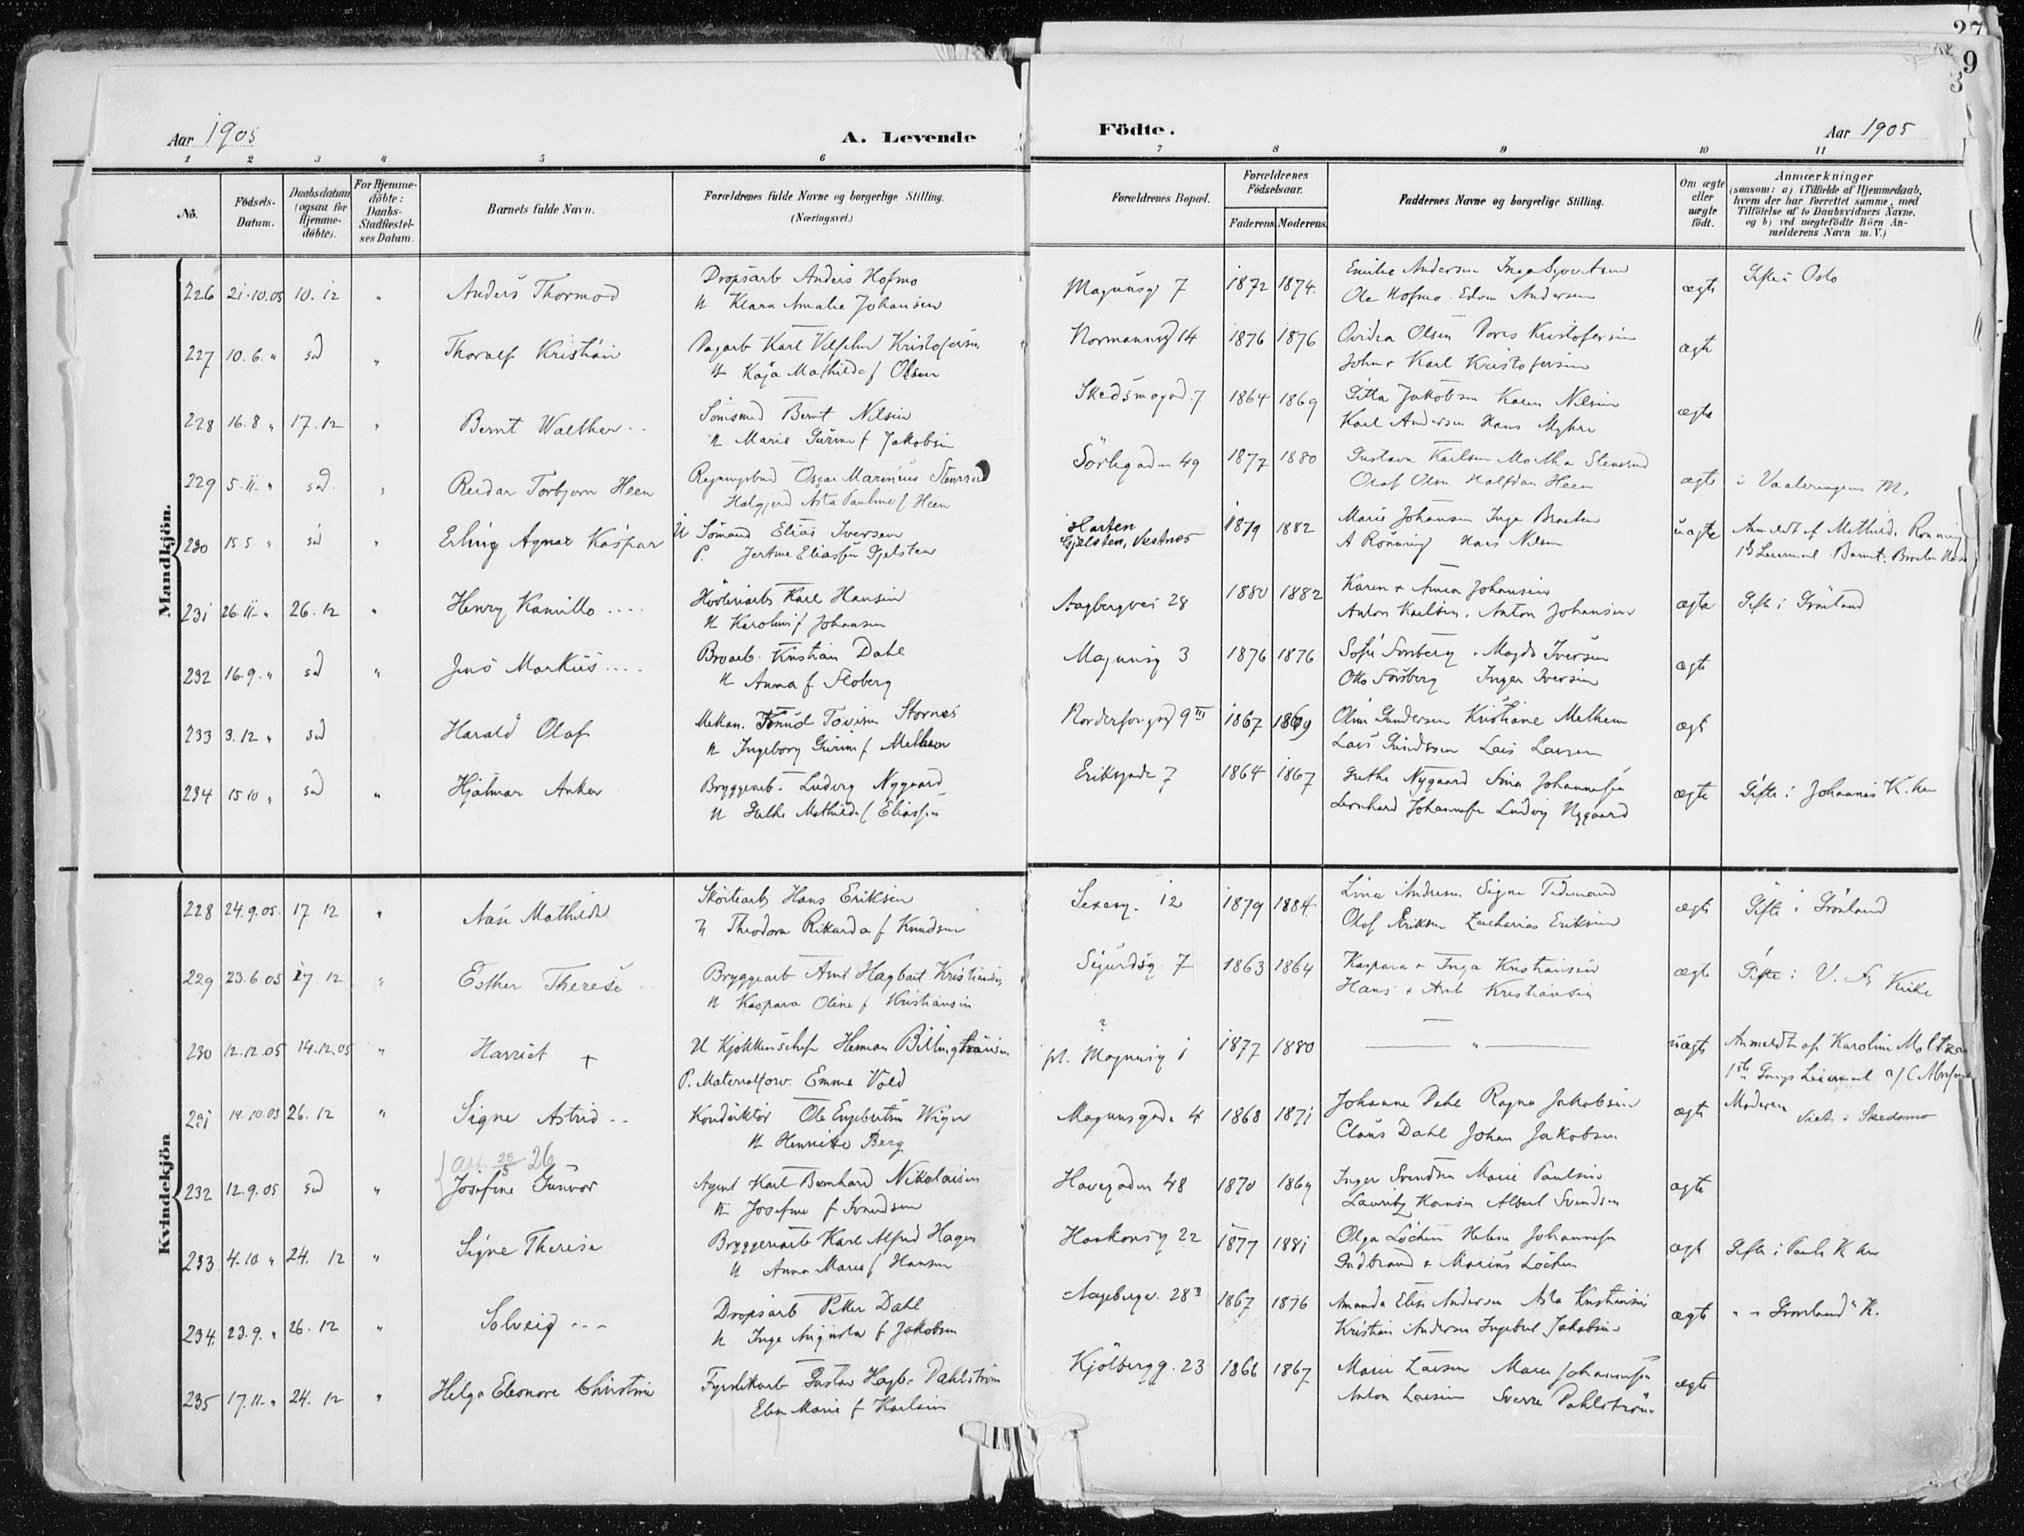 27
9
3
Aar 1905
A. Levende
Födte.
Aar 1905
1 2 3 4 5 6 7 8 9 10 11
No.
Födsels-
Datum.
Daabsdatum
(ogsaa for
Hjemme-
döbte).
For Hjemme-
döbte:
Daabs-
Stadfæstel-
ses Datum.
Barnets fulde Navn.
Forældrenes fulde Navne og borgerlige Stilling.
(Næringsvei.)
Forældrenes Bopæl.
Forældrenes
Födselsaar.
Faderens. Moderens.
Faddernes Navne og borgerlige Stilling.
Om ægte
eller
uægte
födt.
Anmærkninger
(saasom: a) i Tilfælde af Hjemmedaab,
hvem der har forrettet samme, med
Tilföielse af to Daabsvidners Navne,
og b) ved uægtefödte Börn An-
melderens Navn m. V.)
Mandkjön.
226 21.10.05 10.12 " Anders Thormod
Dropsarb Anders Hofmo
H Klara Amalie Johansen
Magnusg 7 1872 1874
Emilie Andersen Inga Syvertsen
Ole Hofmo Edvin Andersen
ægte Gifte i Oslo
227 10.6. " sd " Thoralf Kristian
Dagarb Karl Vilhelm Kristofersen
H Kaja Mathilde f Olsen
Normannsg 14 1876 1876
Ovidia Olsen Dores Kristofersen
John + Karl Kristofersen
ægte
228 16.8 " 17.12 " Bernt Walther
Bernt Nilsen
H Marie Gurine f Jakobsen
Skedsmogad. 7 1864 1869
Gitta Jakobsen Karen Nilsen
Karl Andersen Hans Myhre
ægte
229 5.11. " sd. " Reidar Torbjorn Heen
Regningsbud Oscar Marinius Stensrud
Halgjerd Asta Pauline f Heen
Sörligaden 49 1877 1880
Gustava Karlsen Martha Stensrud
Olaf Olsen Halfdan Heen
ægte i Vaalerengens M.
230 15 5 " sd " Erling Agnar Kaspar
U Sömand Elias Iversen
P. Jertine Eliassen Gjelsten
Harten
Gjelsten, Vestnes 1879 1882
Marie Johansen Inga Braaten
A Rönning Hans Nilsen
uægte Anmeldt af Methide Ronning
1ste Leiermaal Barnet: Braaten
231 26.11. " 26.12 " Henry Kamillo
Karl Hansen
H Karoline f Johansen
Aagbergvei 28 1880 1882
Karen + Anna Johansen
Anton Karlsen. Anton Johansen
ægte Gifte i Grönland
232 16.9. " sd " Jens Markus
Broarb. Kristian Dahl
H Anna f Floberg
Magnusg 3 1876 1876
Sofie Forsberg. Magda Iversen
Otto Forsberg Inger Iversen
ægte
233 3.12 " sd Harald Olaf
Mekan. Knud Tovisen Stornes
H Ingeborg Gurine f Melhem
Norderhovgd 9 III 1867 1869
Oline Gundersen Kristiane Melhem
Lars Gundersen Lars Larsen
ægt
234 15 10 " sd " Hjalmar Anker
Bryggearb. Ludvig Nygaard
H Grethe Mathilde f Eliassen
Eriksgade 7 1864 1867
Grethe Nygaard Sina Johannesen
Leonhard Johannesen Ludvig Nygaard
ægte Gifte i Johannes K. her
Kvindekjön
228 24.9.05. 17 12 " Aase Mathilde
Hans Eriksen
H Theodora Rikarda f Knudsen
Sexesg. 12 1879 1884
Lina Andresen Signe Tidemand
Olaf Eriksen Zacharias Eriksen
ægte Gifte i Grönland
229 23.6 05 17 12 " Esther Therese
Bryggearb Arnt Hagbart Kristiansen
H Kaspara Oline f Kristiansen
Sigurdsg. 7 1863 1864
Kaspara + Inga Kristiansen
Hans + Arnt Kristiansen
ægte Gifte i V. Kirke
230 12.12.05 14.12.05 " Harriet +
U Kjökkenschef Herman
P. Materialforv. Emma Vold
?
pl. Magnusg 1 1877 1880
"
uægte Anmeldt af Karoline Moltzen
1ste Gangs Leiermaal
231 14.10.05 26.12 " Signe Astrid
Konduktör Ole Engebretsen Wiger
H Henrikke Berg
Magnusgade 4 1868 1871
Johanne Dahl Ragna Jakobsen
Claus Dahl Johan Jakobsen
ægte Moderen viet i Skedsmo
26
232 12.9.05 sd " Josefine Gunvor
Agent Karl Bernhard Nikolaisen
H Josefine f Svendsen
Havegaden 48 1870 1869
Inger Svendsen Marie Paulsen
Lauritz Hansen Albert Svendsen
ægte
233 4.10 " 24. 12 " Signe Therese
Bryggeriarb Karl Alfred Hagen
H Anna Marie f Hansen
Haakonsg 22 1877 1881
Olga Löchen Helene Johannesen
Gudbrand + Marius Löchen
ægt Gifte i Pauls K her
234. 23.9. " 26.12 " Solveig
Dropsarb Peter Dahl
H Inga Augusta f Jakobsen
Aagebergv. 28 II 1867 1876
Amanda Elise Andersen Asta Kristiansen
Kristian Andersen Ingebret Jakobsen
ægte " " Grönland K.
235 17.11. " 24.12 " Helga Eleonore Christine
Fyrstikarb Gustav Hagb. Dahlström
Elen Marie f Karlsen
Kjölbergg. 23 1866 1867
Marie Larsen Maren Johannesen
Anton Larsen Sverre Dahlström
ægte